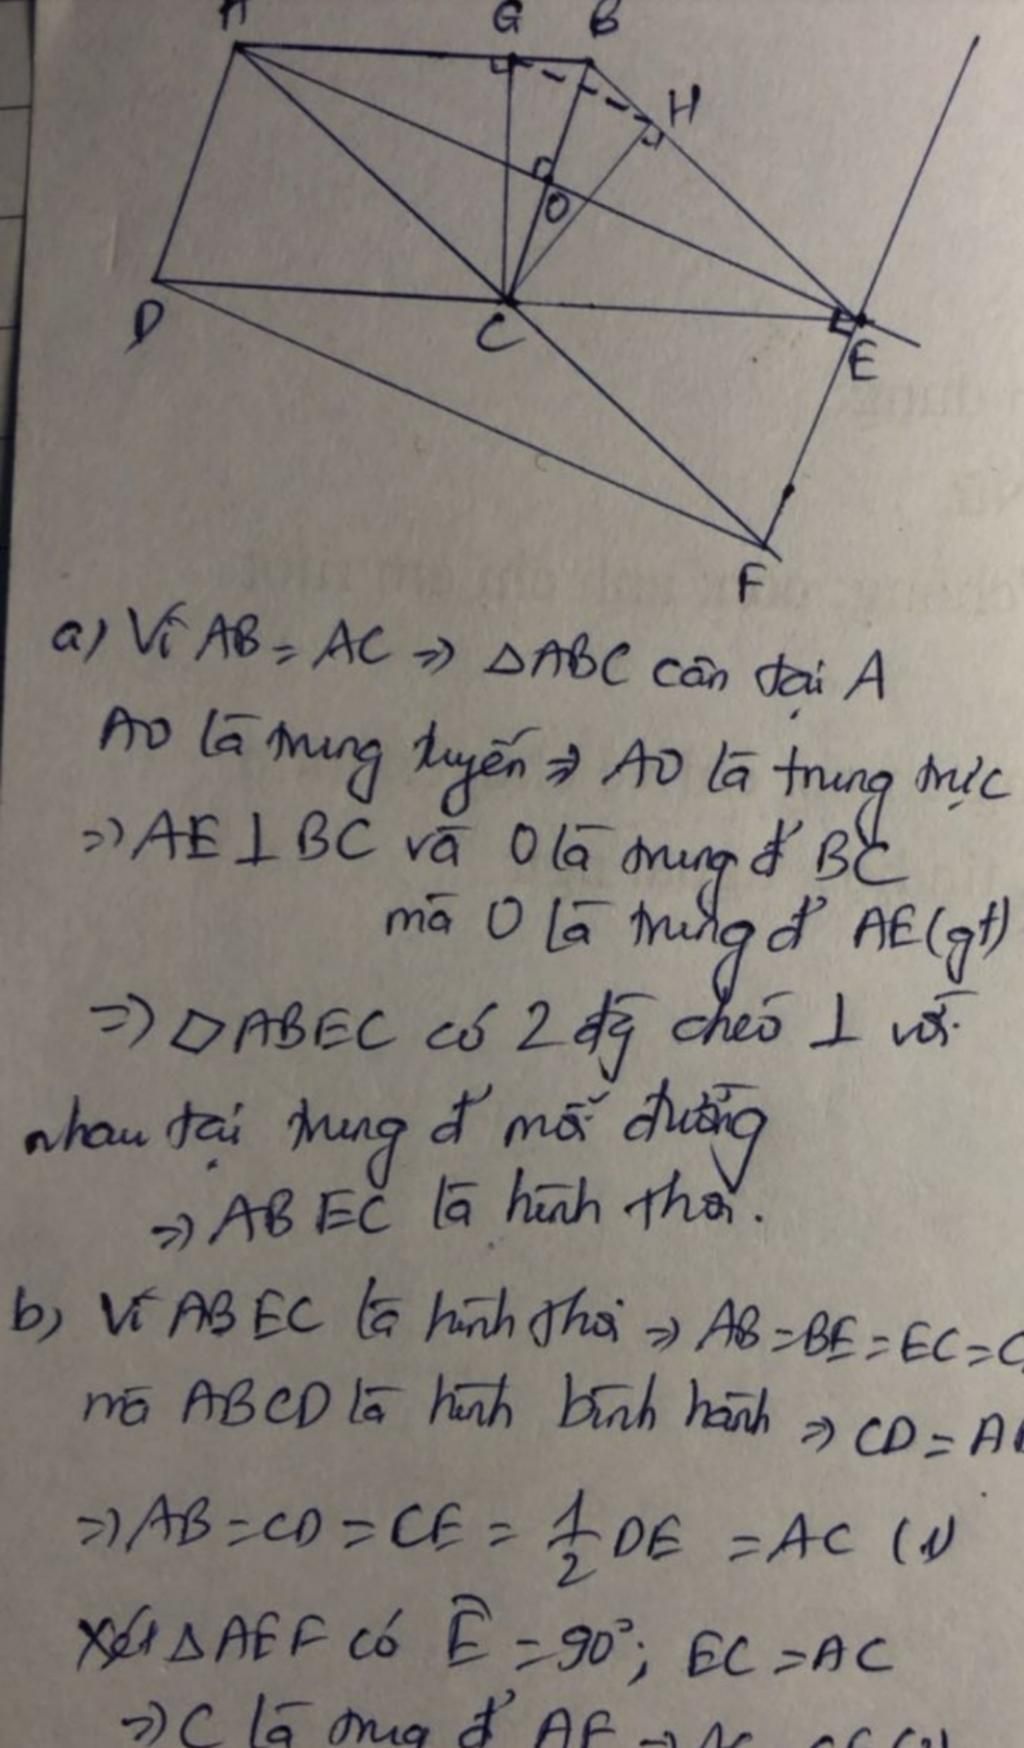 A G B
H
O
D C E
F
a) Vì AB = AC => △ABC cân tại A
AO là trung tuyến => AO là trung trực
=> AE ⊥ BC và O là trung đ' BC
mà O là trung đ' AE (gt)
=> ▱ABEC có 2 đg̀ chéo ⊥ với
nhau tại trung đ' mỗi đường
=> ABEC là hình thoi.
b) Vì ABEC là hình thoi => AB = BE = EC = C
mà ABCD là hình bình hành => CD = A
=> AB = CD = CE = 1/2 DE = AC (1)
Xét △AEF có Ê = 90°; EC = AC
=> C là trung đ' AF =>